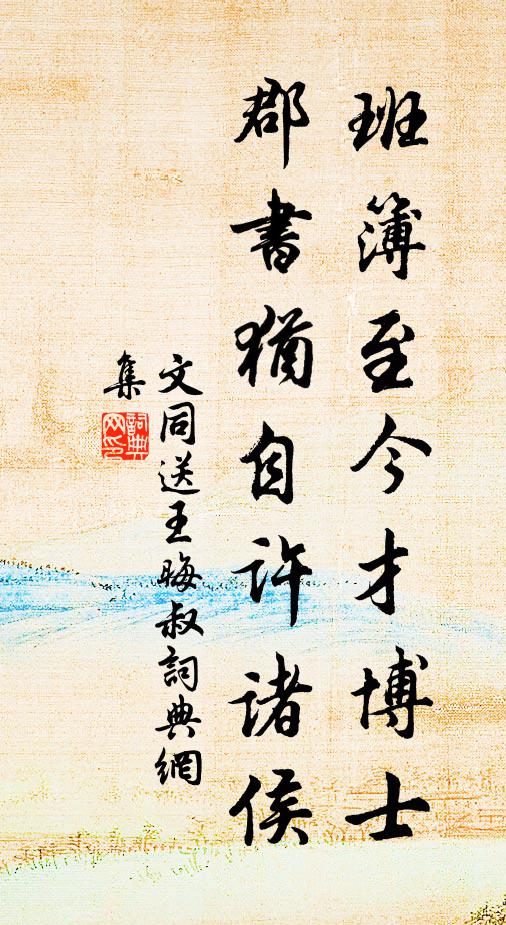 班簿至今才博士
郡書猶自許諸侯
文同送王晦叔詞典網
集
詞典網印